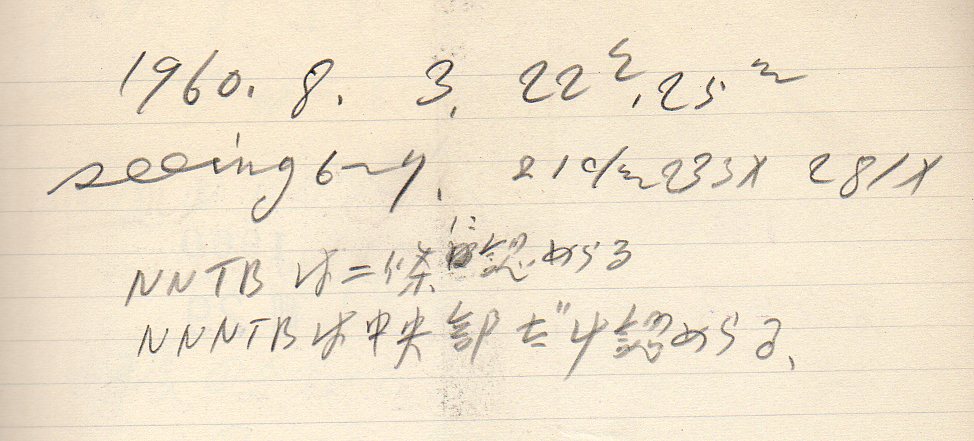 1960. 8. 3. 22h. 25m
seeing 6~7. 21c/m 233X 281X
NNTBは二條に認めらる
NNNTBは中央部だけ認めらる、